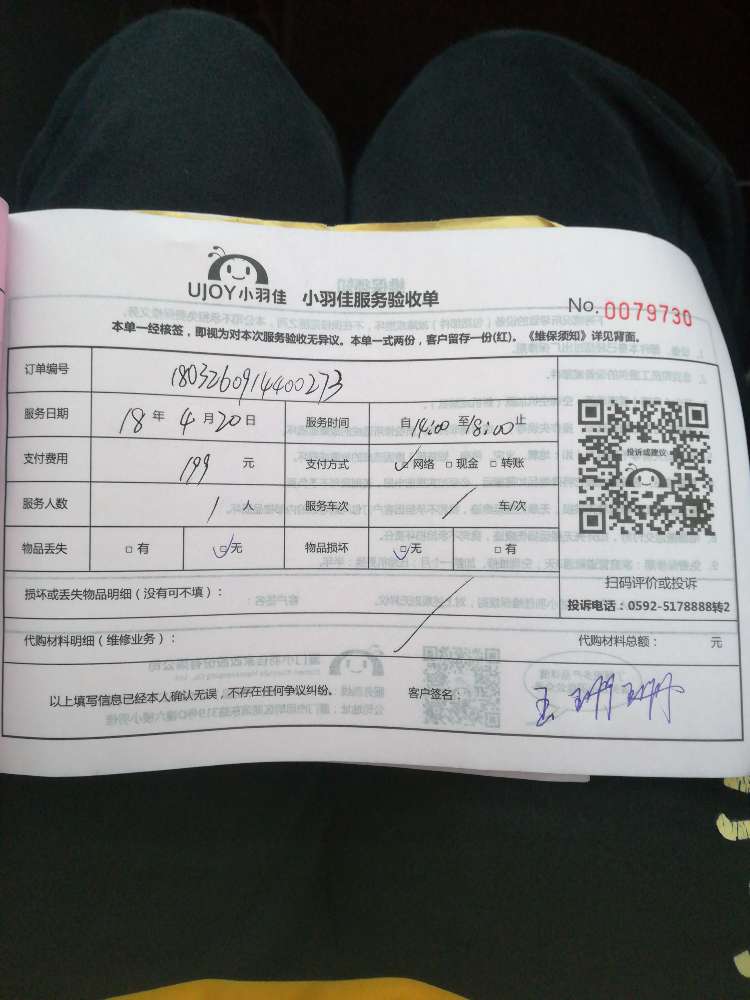 UJOY小羽佳 小羽佳服务验收单
No. 0079730
本单一经核签，即视为对本次服务验收无异议。本单一式两份，客户留存一份(红)。《维保须知》详见背面。
订单编号 1803260914400273
服务日期 18 年 4 月 20 日 服务时间 自 14:00 至 18:00 止
支付费用 199 元 支付方式 ☑ 网络 □ 现金 □ 转账
服务人数 1 人 服务车次 / 车/次
物品丢失 □ 有 ☑ 无 物品损坏 ☑ 无 □ 有
投诉或建议
扫码评价或投诉
投诉电话：0592-5178888转2
损坏或丢失物品明细（没有可不填）：
代购材料明细（维修业务）： 代购材料总额： 元
以上填写信息已经本人确认无误，不存在任何争议纠纷。 客户签名： 王珊珊